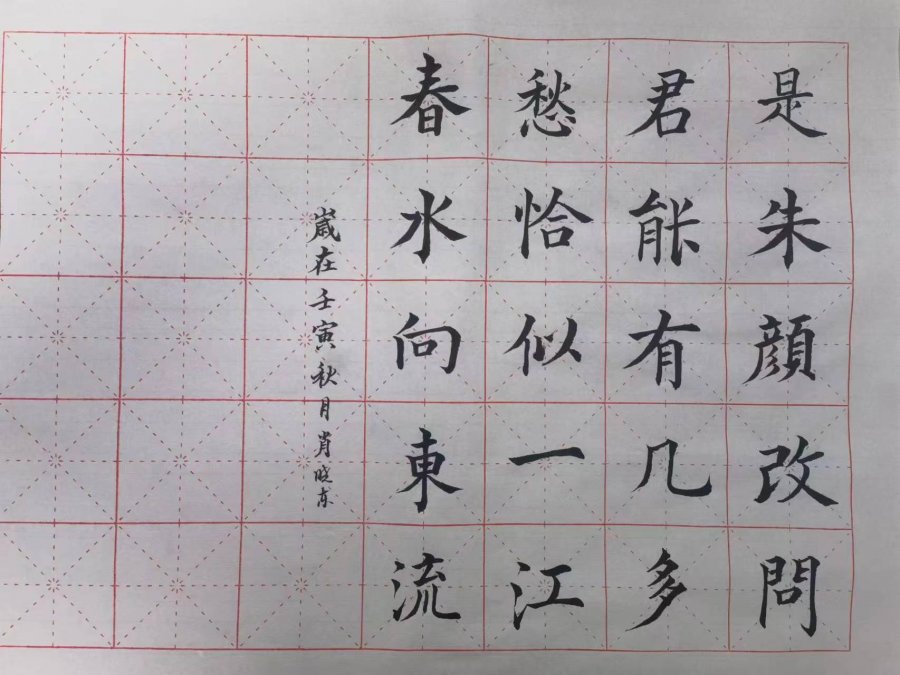 是朱顔改問
君能有几多
愁恰似一江
春水向東流
嵗在壬寅秋月肖晓东